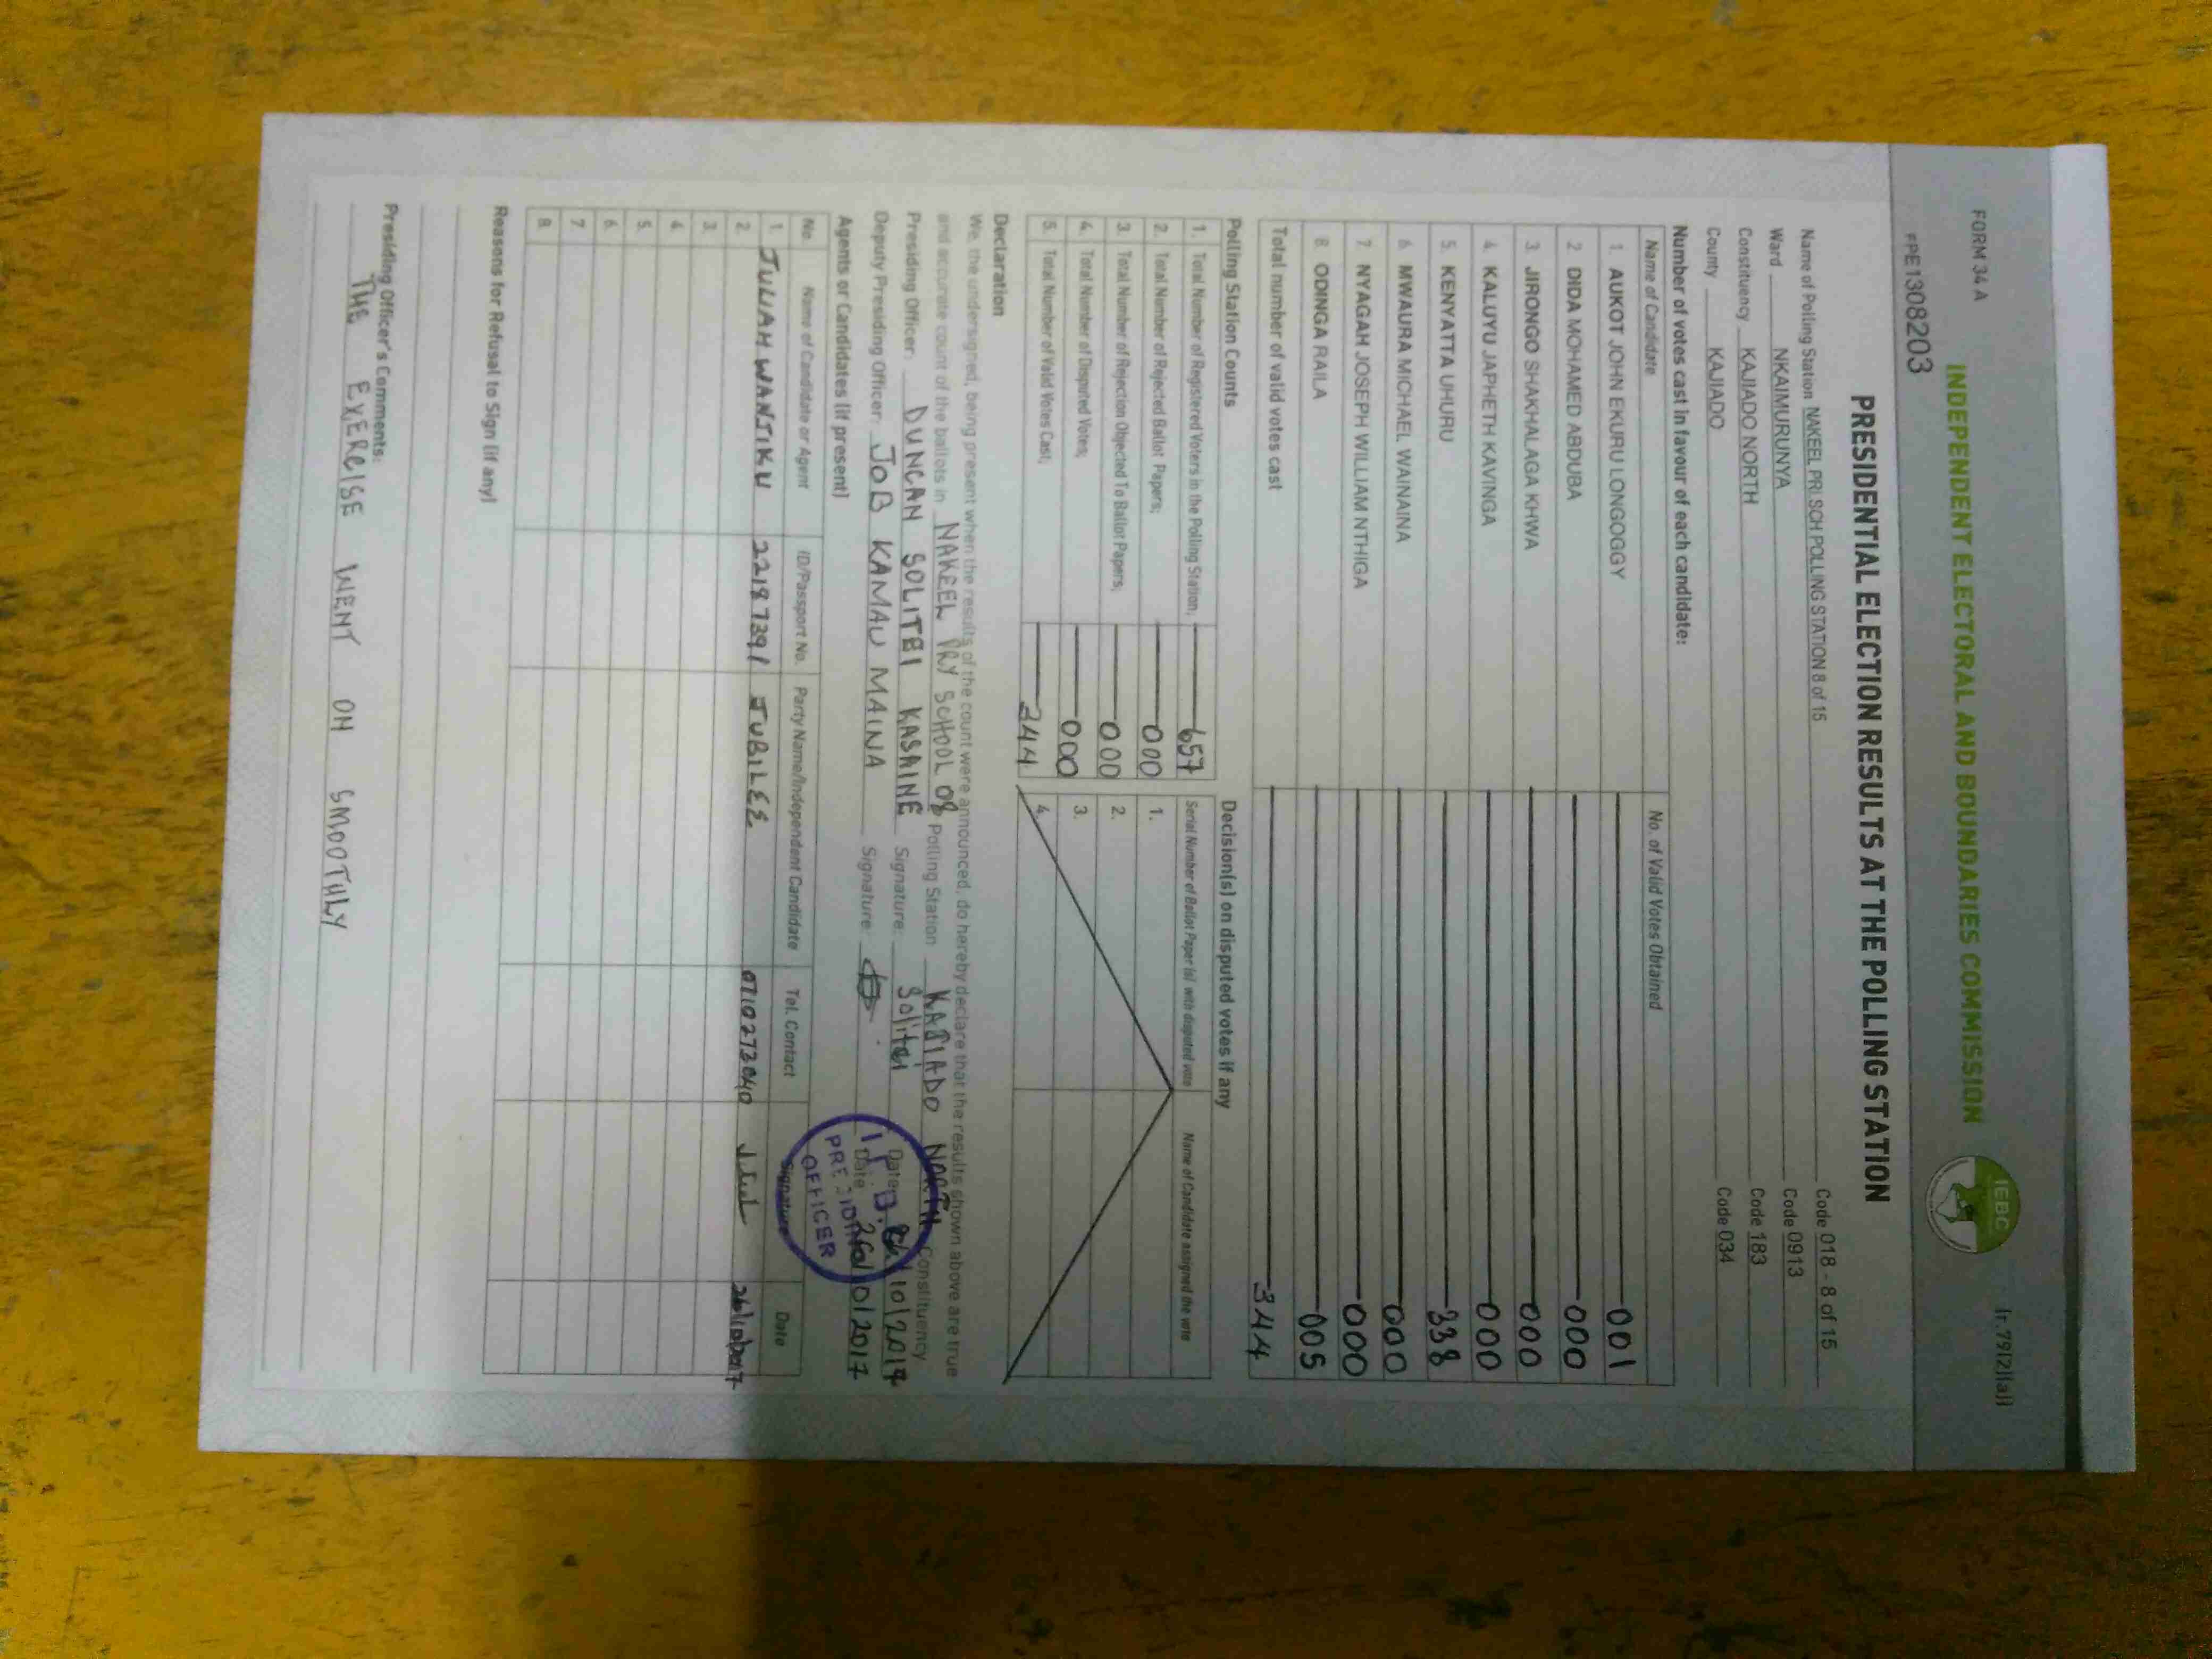 FORM 34 A
INDEPENDENT ELECTORAL AND BOUNDARIES COMMISSION
IEBC
(r.79(2)(a))
FPE1308203
PRESIDENTIAL ELECTION RESULTS AT THE POLLING STATION
Name of Polling Station NAKEEL PRI SCH POLLING STATION 8 of 15 Code 018 - 8 of 15
Ward NKAIMURUNYA Code 0913
Constituency KAJIADO NORTH Code 183
County KAJIADO Code 034
Number of votes cast in favour of each candidate:
Name of Candidate No. of Valid Votes Obtained
1. AUKOT JOHN EKURU LONGOGGY 001
2 DIDA MOHAMED ABDUBA 000
3. JIRONGO SHAKHALAGA KHWA 000
4. KALUYU JAPHETH KAVINGA 000
5. KENYATTA UHURU 338
6 MWAURA MICHAEL WAINAINA 000
7. NYAGAH JOSEPH WILLIAM NTHIGA 000
8 ODINGA RAILA 005
Total number of valid votes cast 344
Polling Station Counts
1. Total Number of Registered Voters in the Polling Station; 657
2. Total Number of Rejected Ballot Papers; 000
3. Total Number of Rejection Objected To Ballot Papers; 000
4. Total Number of Disputed Votes; 000
5. Total Number of Valid Votes Cast; 344
Decision(s) on disputed votes if any
Serial Number of Ballot Paper (s) with disputed vote Name of Candidate assigned the vote
1.
2.
3.
4.
Declaration
We, the undersigned, being present when the results of the count were announced, do hereby declare that the results shown above are true
and accurate count of the ballots in NAKEEL PRY SCHOOL 08 Polling Station KAJIADO NORTH Constituency
Presiding Officer: DUNCAN SOLITEI KASAINE Signature: Solitei Date
Deputy Presiding Officer: JOB KAMAU MAINA Signature: Date 26/10/2017
PRESIDING
OFFICER
Agents or Candidates (if present)
No. Name of Candidate or Agent ID/Passport No. Party Name/Independent Candidate Tel. Contact Signature Date
1. JULIAH WANJIKU 22187391 JUBILEE 0710272040 26/10/2017
2.
3.
4.
5.
6.
7
8.
Reasons for Refusal to Sign (if any)
Presiding Officer's Comments:
THE EXERCISE WENT ON SMOOTHLY